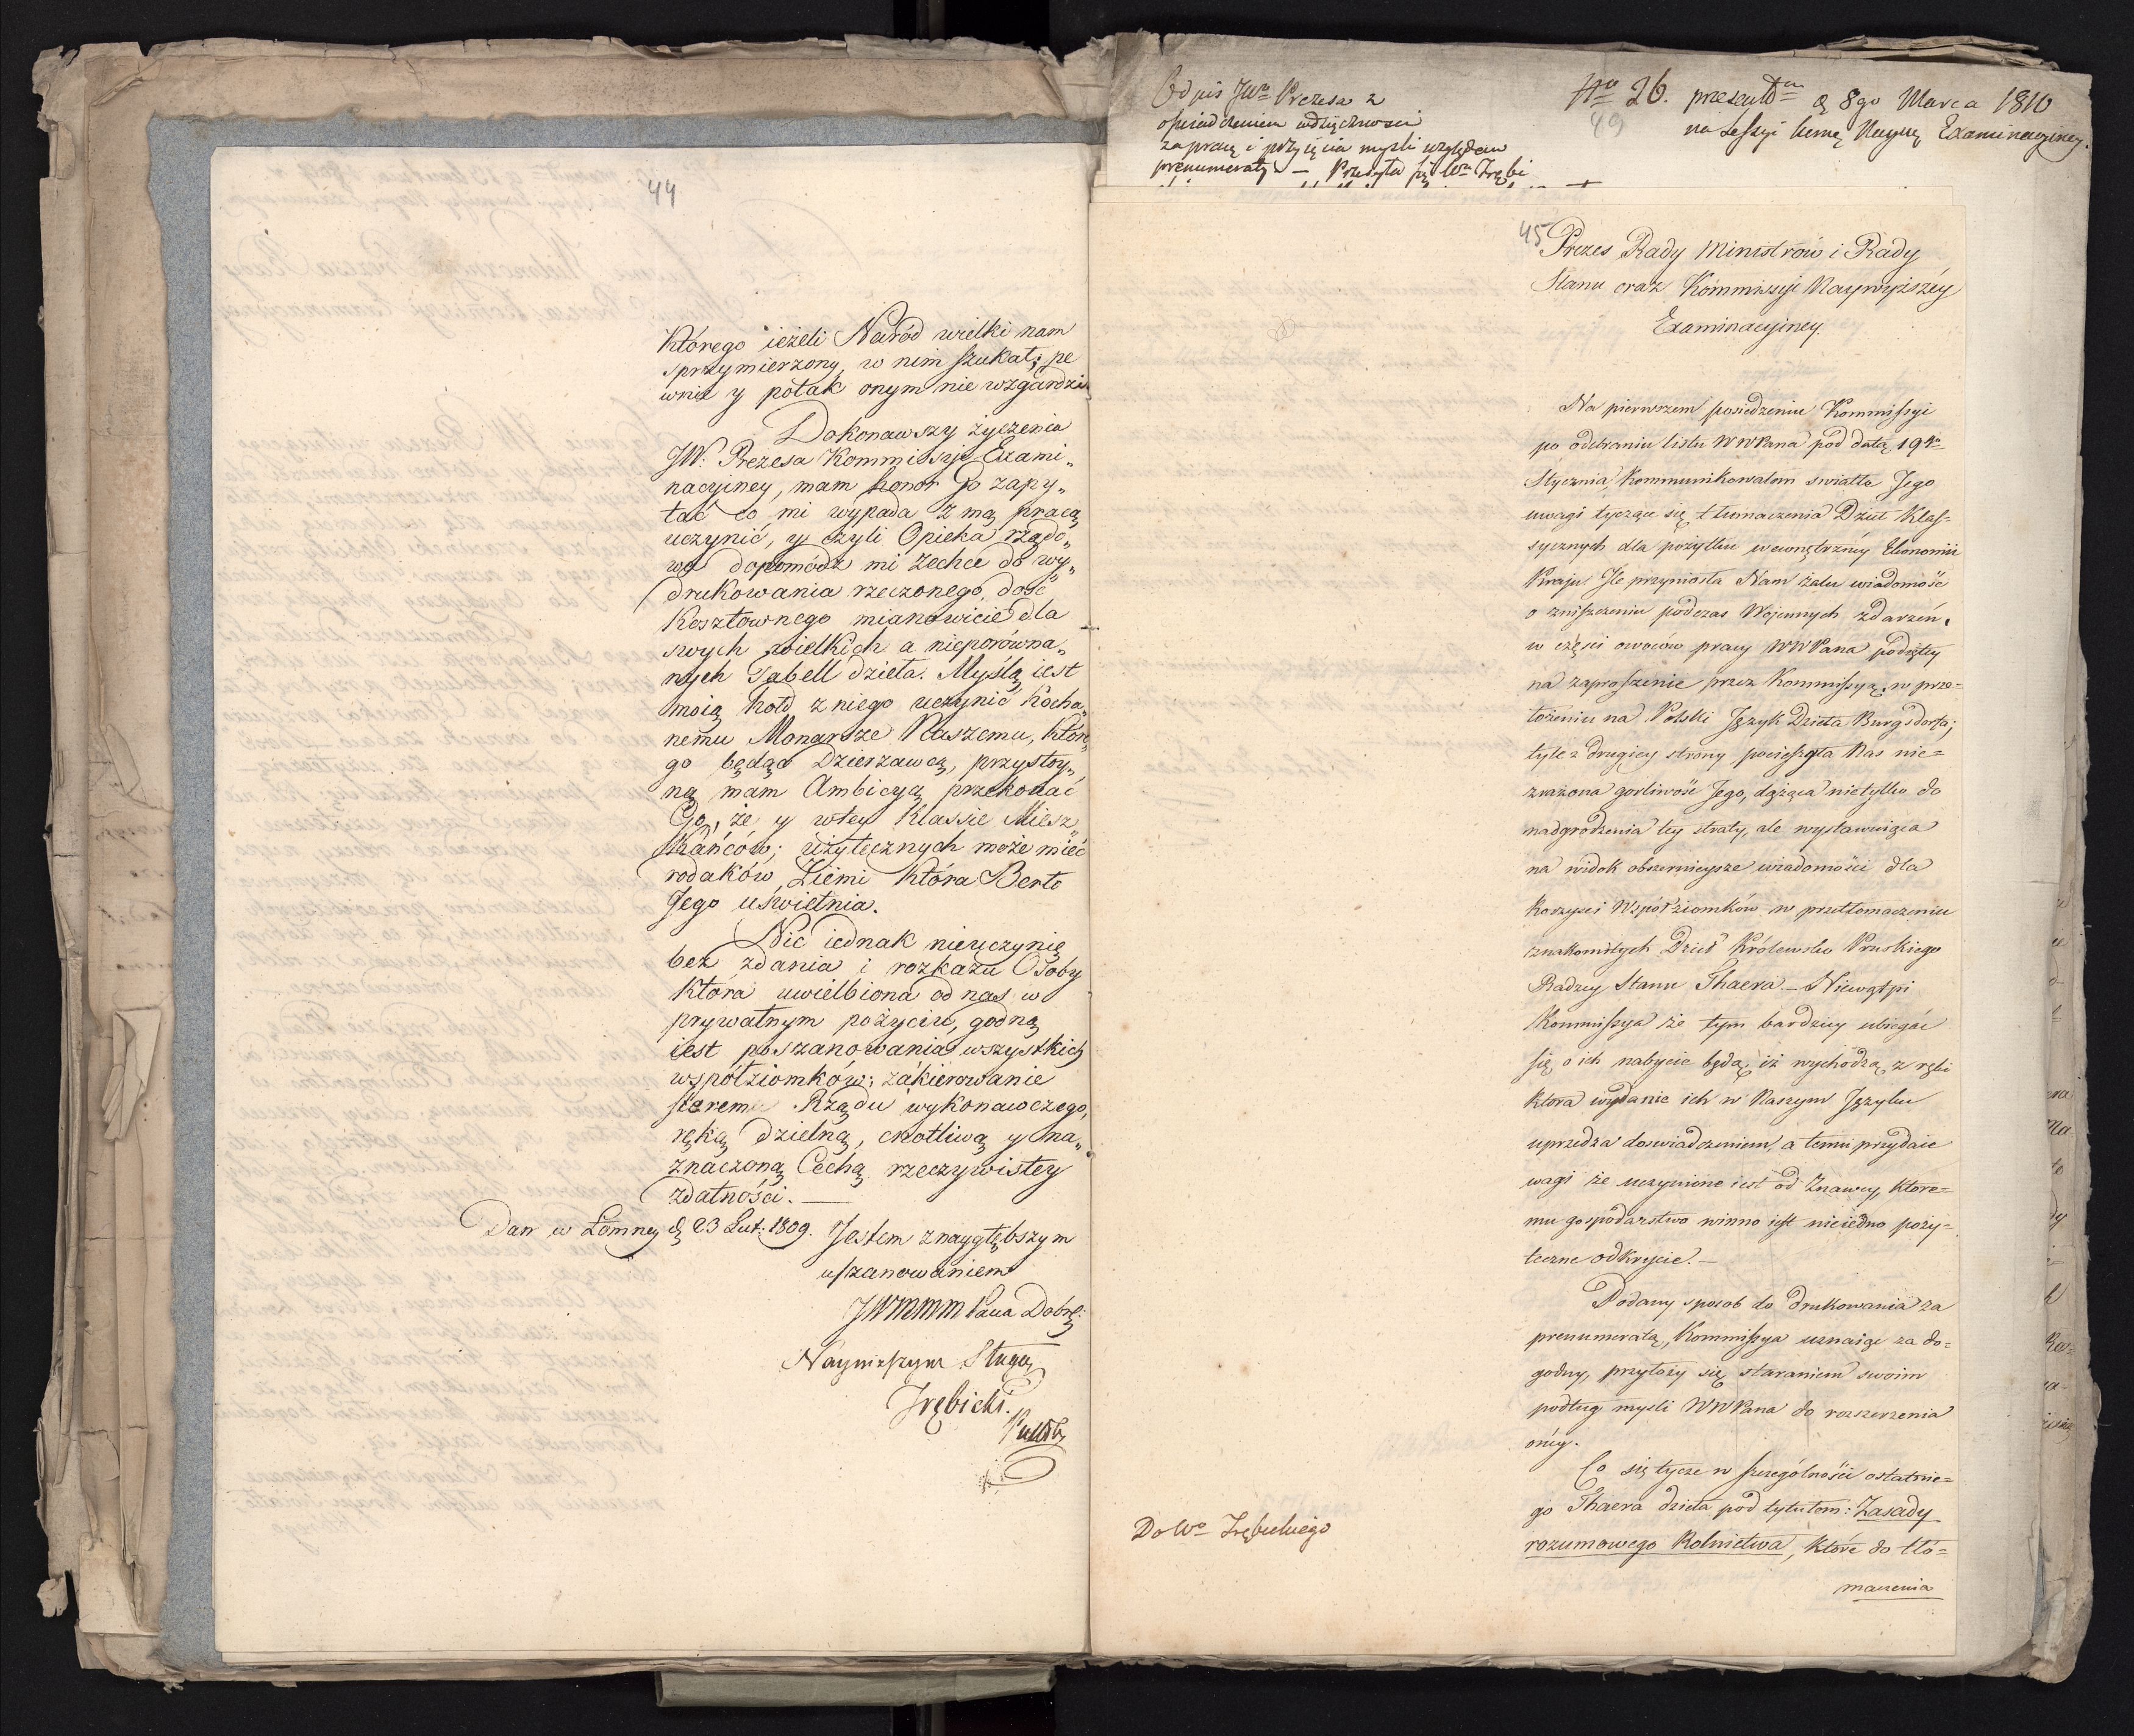 44
którego ieżeli Naród wielki nam
sprzymierzony, w nim szukał; pe
wnie y polak onym nie wzgardzi
Dokonawszy życzenia
JW: Prezesa Kommissyi Exami„
nacyiney, mam honor Go zapy„
tać co mi wypada z mą pracą
uczynić, y czyli Opieka rządo„
wa dopomódz mi zechce do wy„
drukowania rzeczonego, dość
kosztownego mianowicie dla
swych wielkich a nieporówna„
nych Tabell dzieła. Myślą iest
moią hołd z niego uczynić kocha„
nemu Monarsze Naszemu, które„
go będąc Dzierżawcą, przystoy„
ną mam Ambicyą przekonać
Go, że y w tey klassie Miesz„
kańców; użytecznych może mieć
rodaków, Ziemi która Berło
Jego uświetnia.
Nic iednak nieuczynię
bez zdania i rozkazu Osoby
która uwielbiona od nas w
prywatnym pożyciu, godną
iest poszanowania wszystkich
współziomków; zakierowanie
sterem Rządu wykonawczego,
ręką dzielną, cnotliwą y na„
znaczoną Cechą rzeczywistey
zdatności. —
Dan w Łomney d 23 Lut: 1809. Jestem z naygłębszym
uszanowaniem
JWMMM Pana Dobr:
Nayniższym Sługą
Trębicki.
Odpis JWo Prezesa z
oświadczeniem wdzięczności
za pracę i przyięcia myśli względem
prenumeraty — Przesyła się Wo Trębi
No 26. presentm d 8go Marca 1810
49
na Sessyi kom: Nayw: Examinacyiney.
45
Prezes Rady Ministrów i Rady
Stanu oraz Kommissyi Naywyższéy
Examinacyiney.
Na pierwszem posiedzeniu Kommissyi
po odebraniu listu WWPana pod datą 19go
Stycznia, kommunikowałem światłe Jego
uwagi tyczące się tłumaczenia Dzieł klas=
sycznych dla pożytku wewnętrznéy Ekonomii
Kraju. Ile przyniosła Nam żalu wiadomość
o zniszczeniu podczas Wojennych zdarzeń,
w części owoców pracy WWPana podiętey
na zaproszenie przez Kommissyą, w prze=
łożeniu na Polski Język Dzieła Burgsdorfa;
tyle z drugiey strony pocieszyła Nas nie=
zrażona gorliwość Jego, dążąca nietylko do
nadgrodzenia tey straty, ale wystawuiąca
na widok obszernieysze wiadomości dla
korzyści Współziomków w przetłomaczeniu
znakomitych Dzieł Królewsko Pruskiego
Radzcy Stanu Thaera. — Niewątpi
Kommissya że tym bardziey ubiegać
się o ich nabycie będą, iż wychodzą z ręki
która wydanie ich w Naszym Języku
uprzedza doświadczeniem, a temu przydaie
wagi że uczynione iest od Znawcy, które=
mu gospodarstwo winno iest nieiedno poży=
teczne odkrycie. —
Podany sposob do drukowania za
prenumeratą, Kommissya uznaiąc za do=
godny, przyłoży się staraniem swoim
podług myśli WWPana do rozszerzenia
onéy.
Co się tycze w szczególności ostatnie=
go Thaera dzieła pod tytułem: Zasady
rozumowego Rolnictwa, które do tłó=
maczenia
Do Wo Trębickiego